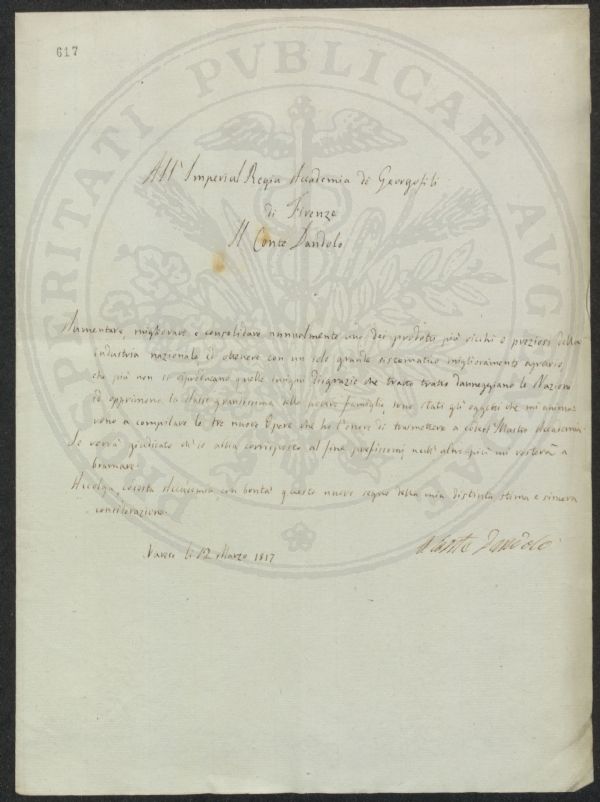 617
PROSPERITATI PVBLICAE AVGENDAE
All' Imperial Regia Accademia di Georgofili
di Firenze
Il Conte Dandolo
Aumentare, migliorare e consolidare annualmente uno dei prodotti più ricchi e preziosi della
industria nazionale ed ottenere con un solo grande sistematico miglioramento agrario,
che più non si riproducano quelle insigni disgrazie che tratto tratto danneggiano le Nazioni
ed opprimono la classe grandissima delle povere famiglie, sono stati gli oggetti che mi anima-
rono a compilare le tre nuove Opere che ho l'onore di trasmettere a codest'
Se verrà giudicato ch'io abbia corrisposto al fine prefissomi, null'altro più mi resterà a
bramare.
Accolga, codesta Accademia, con bontà questo nuovo segno della mia distinta stima e sincera
considerazione.
Varese li 12 Marzo 1817
Il Conte Dandolo